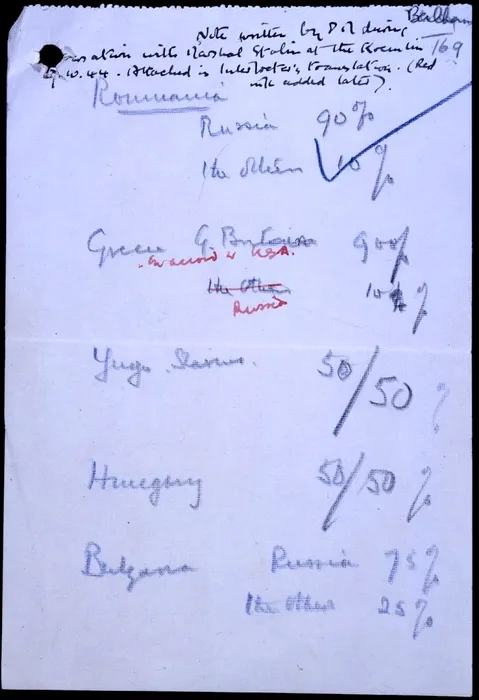 Note written by P.M. during
conversation with Marshal Stalin at the Kremlin 169
10.44. Attached is Interpreter's translation. (Red
ink added later).
Roumania
Russia 90%
the others 10%
Greece G. Britain 90%
in accord w USA.
the others 10%
Russia
Yugo Slavia 50/50 %
Hungary 50/50 %
Bulgaria Russia 75%
the others 25%